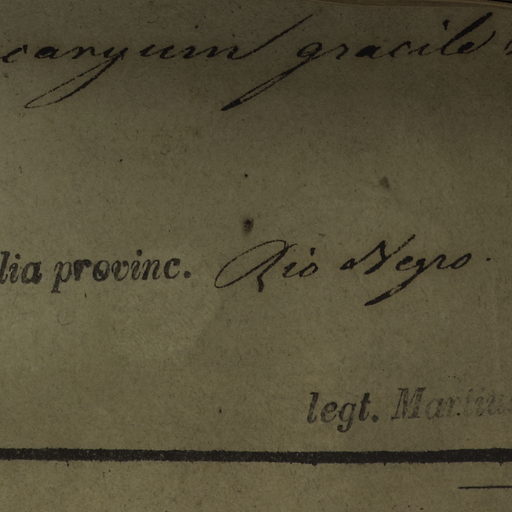 caryum gracile
lia provinc. Rio Negro.
legt. Martius